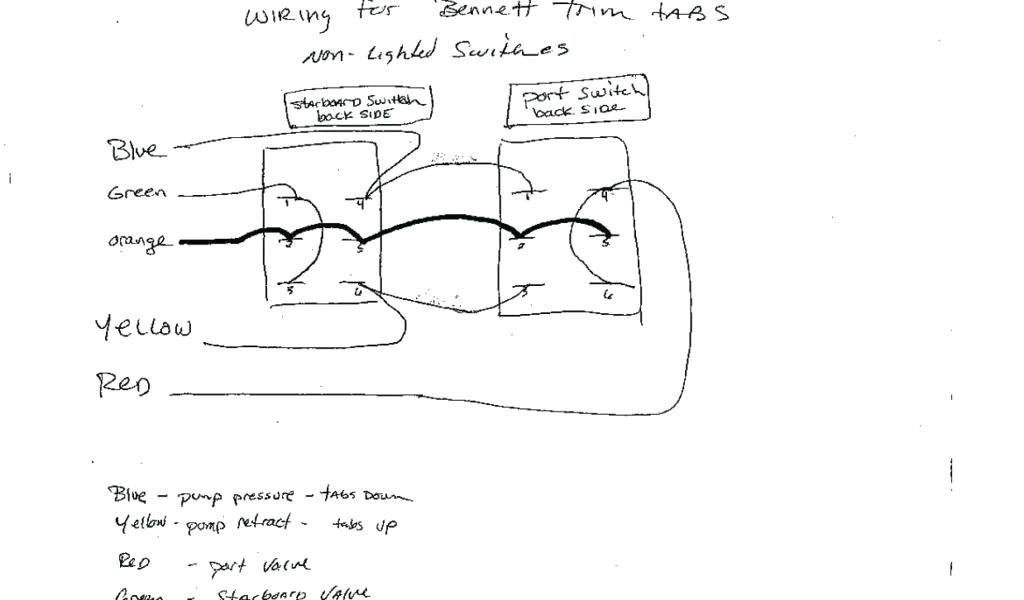 WIRING for Bennett Trim tABS
NON-Lighted Switches
StarboarD Switch
back SIDE
port Switch
back SIDe
Blue
Green
orange
Yellow
ReD
1 4
2 5
3 6
1 4
2 5
3 6
Blue - pump pressure - tABS Down
Yellow - pump retract - tabs up
ReD - port valve
Green - Starboard Valve